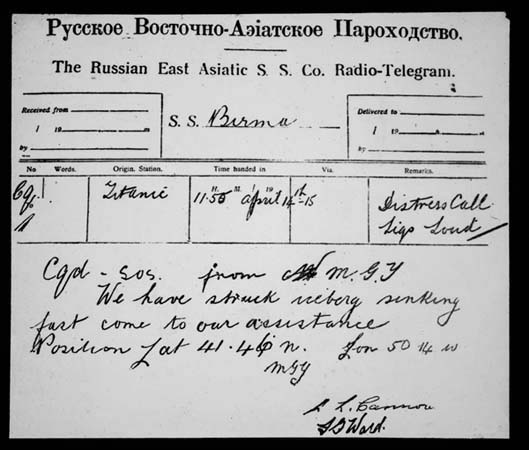 Русское Восточно-Азіатское Пароходство.
The Russian East Asiatic S. S. Co. Radio-Telegram.
Received from
S. S. Birma
Delivered to
1 19 m
1 19 m
by
by
No Words. Origin. Station. Time handed in Via. Remarks.
H. M. 19
Cq. Titanic 11.50 April 14th-15 Distress Call
1 Sigs Loud
Cqd - sos. from M.G.Y
We have struck iceberg sinking
fast come to our assistance
Position Lat 41.46 n. Lon 50 14 w
MGY
L. Cannon
Ward.